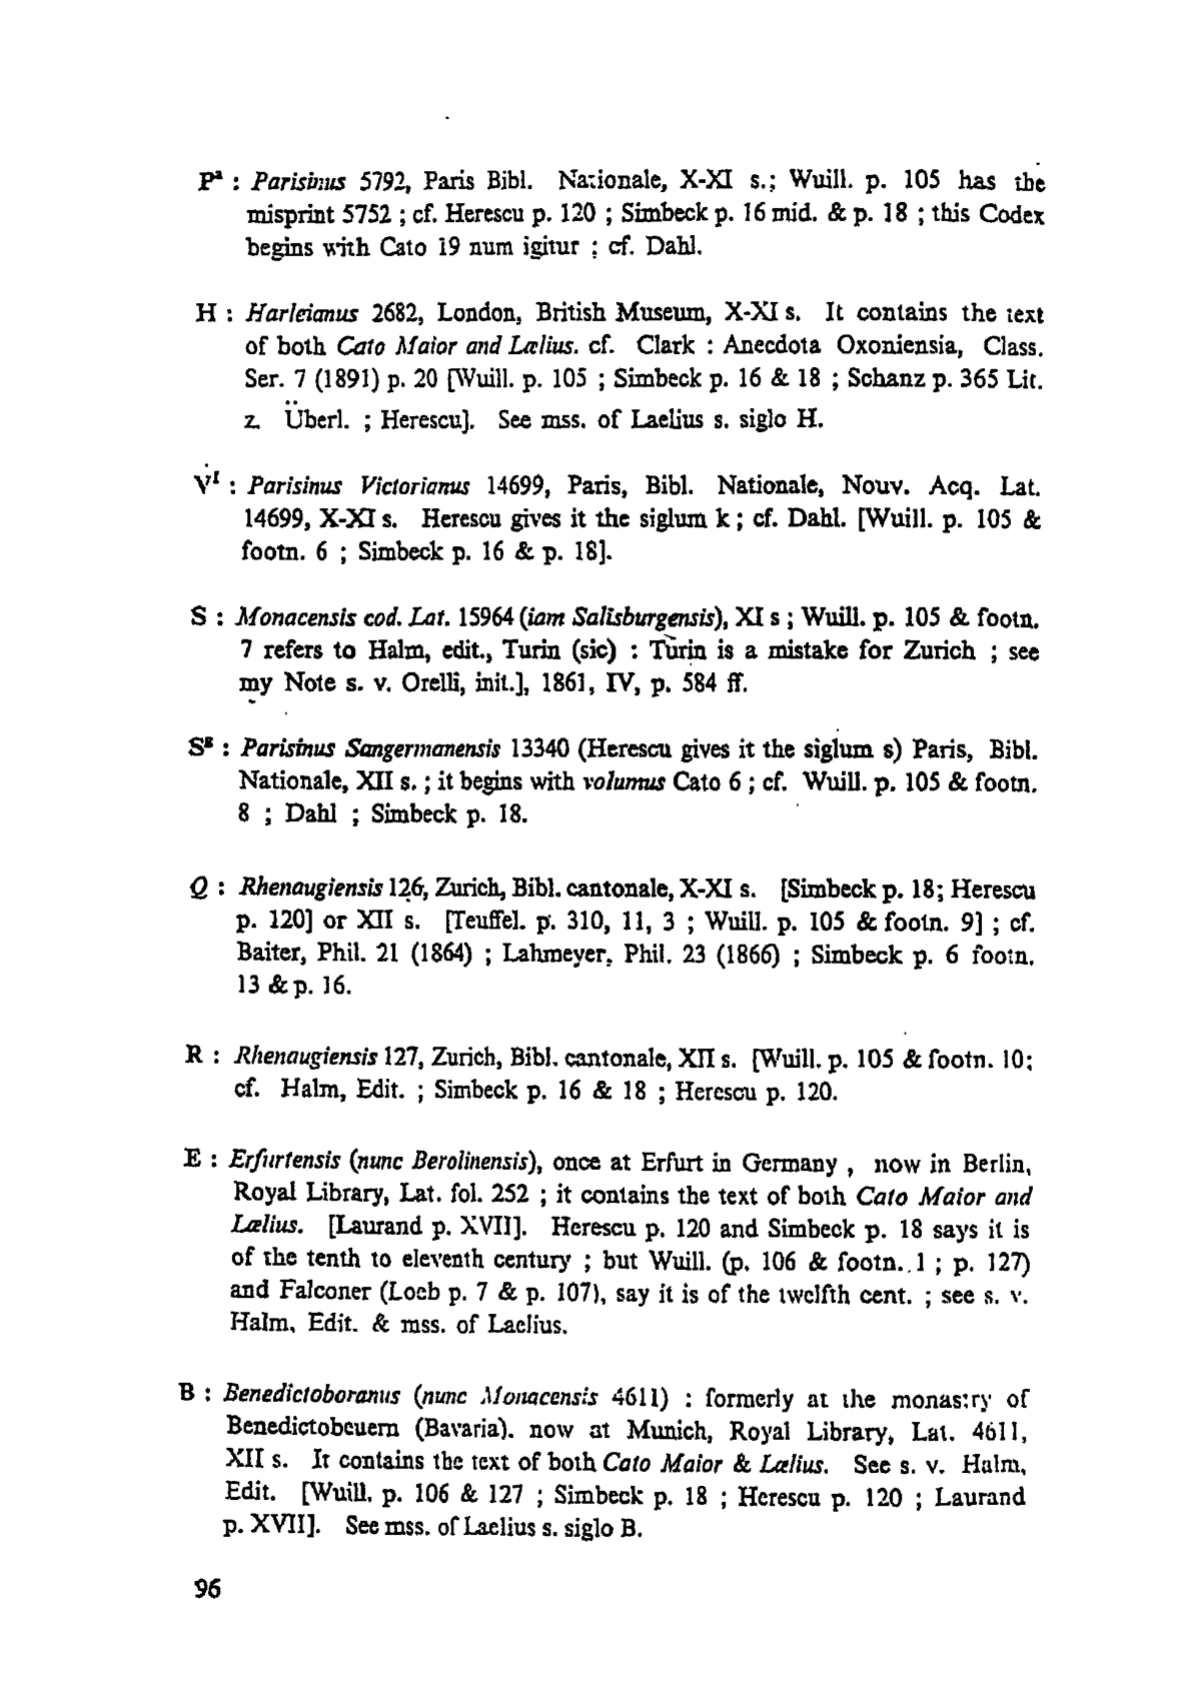 Pª : Parisinus 5792, Paris Bibl. Nationale, X-XI s.; Wuill. p. 105 has the
misprint 5752 ; cf. Herescu p. 120 ; Simbeck p. 16 mid. & p. 18 ; this Codex
begins with Cato 19 num igitur ; cf. Dahl.
H : Harleianus 2682, London, British Museum, X-XI s. It contains the text
of both Cato Maior and Lælius. cf. Clark : Anecdota Oxoniensia, Class.
Ser. 7 (1891) p. 20 [Wuill. p. 105 ; Simbeck p. 16 & 18 ; Schanz p. 365 Lit.
z. Überl. ; Herescu]. See mss. of Laelius s. siglo H.
V¹ : Parisinus Victorianus 14699, Paris, Bibl. Nationale, Nouv. Acq. Lat.
14699, X-XI s. Herescu gives it the siglum k ; cf. Dahl. [Wuill. p. 105 &
footn. 6 ; Simbeck p. 16 & p. 18].
S : Monacensis cod. Lat. 15964 (iam Salisburgensis), XI s ; Wuill. p. 105 & footn.
7 refers to Halm, edit., Turin (sic) : Turin is a mistake for Zurich ; see
my Note s. v. Orelli, init.], 1861, IV, p. 584 ff.
Sᵍ : Parisinus Sangermanensis 13340 (Herescu gives it the siglum s) Paris, Bibl.
Nationale, XII s. ; it begins with volumus Cato 6 ; cf. Wuill. p. 105 & footn.
8 ; Dahl ; Simbeck p. 18.
Q : Rhenaugiensis 126, Zurich, Bibl. cantonale, X-XI s. [Simbeck p. 18; Herescu
p. 120] or XII s. [Teuffel. p. 310, 11, 3 ; Wuill. p. 105 & footn. 9] ; cf.
Baiter, Phil. 21 (1864) ; Lahmeyer, Phil. 23 (1866) ; Simbeck p. 6 footn.
13 & p. 16.
R : Rhenaugiensis 127, Zurich, Bibl. cantonale, XII s. [Wuill. p. 105 & footn. 10;
cf. Halm, Edit. ; Simbeck p. 16 & 18 ; Herescu p. 120.
E : Erfurtensis (nunc Berolinensis), once at Erfurt in Germany , now in Berlin,
Royal Library, Lat. fol. 252 ; it contains the text of both Cato Maior and
Lælius. [Laurand p. XVII]. Herescu p. 120 and Simbeck p. 18 says it is
of the tenth to eleventh century ; but Wuill. (p. 106 & footn. 1 ; p. 127)
and Falconer (Loeb p. 7 & p. 107), say it is of the twelfth cent. ; see s. v.
Halm, Edit. & mss. of Laelius.
B : Benedictoboranus (nunc Monacensis 4611) : formerly at the monastry of
Benedictobeuern (Bavaria). now at Munich, Royal Library, Lat. 4611,
XII s. It contains the text of both Cato Maior & Lælius. See s. v. Halm,
Edit. [Wuill. p. 106 & 127 ; Simbeck p. 18 ; Herescu p. 120 ; Laurand
p. XVII]. See mss. of Laelius s. siglo B.
96